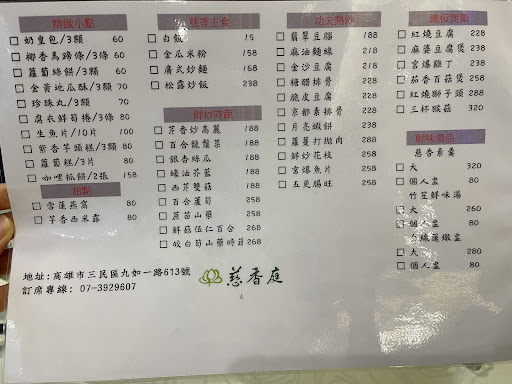 精緻小點
奶皇包/3顆 60
椰香馬蹄條/3條 60
蘿蔔絲餅/3顆 60
金黃地瓜酥/3顆 70
珍珠丸/3顆 70
腐衣鮮筍捲/3條 80
生魚片/10片 100
紫香芋頭糕/3顆 80
蘿蔔糕/3片 80
咖哩抓餅/2張 158
甜點
雪蓮燕窩 80
芋香西米露 80
慈香主食
白飯 15
金瓜米粉 158
廣式炒麵 168
松露炒飯 238
鮮炒時蔬
芹香炒高麗 188
百合龍鬚菜 188
銀杏絲瓜 188
蠔油芥藍 188
西芹雙菇 188
百合蘆筍 258
蔗苗山藥 258
鮮菇伍仁百合 268
皎白筍山藥時蔬 268
功夫熱炒
翡翠豆腦 188
麻油麵線 228
金沙豆腐 228
糖醋排骨 228
脆皮豆腐 228
京都素排骨 228
月亮蝦餅 238
蘿蔓打拋肉 288
鮮炒花枝 258
宮爆魚片 258
五更腸旺 258
鐵板煲點
紅燒豆腐 228
麻婆豆腐煲 228
宮爆雞丁 238
茄香百菇煲 258
紅燒獅子頭 288
三杯猴菇 320
鮮味湯品
慈香素羹
大 320
個人盅 80
竹笙鮮味湯
大 260
個人盅 80
大 280
個人盅 80
地址:高雄市三民區九如一路613號
訂席專線: 07-3929607
慈香庭
4